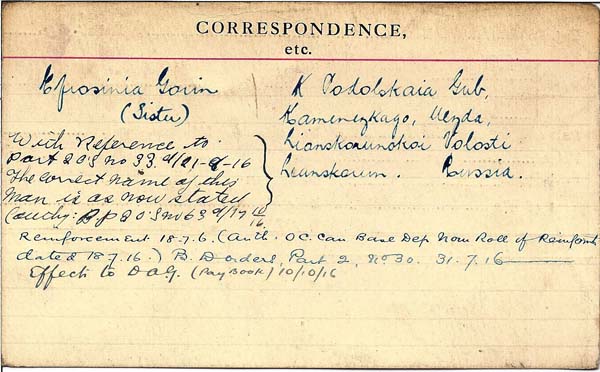 CORRESPONDENCE,
etc.
Efrosinia Gorin
(Sister)
K Podolskaia Gub,
Kamenezkago, Uezda,
Lianskorunskoi Volosti
Russia.
With Reference to
Part 2 O.S no 33 d/21-8-16
The correct name of this
man is as now stated
Reinforcement 18.7.6. (Auth. O.C. Can Base Dep Nom Roll of Reinfmts
dated 18.7.16.) B. Dorders, Part 2, No 30. 31.7.16
Effects to DAG. (Pay Book) 10/10/16